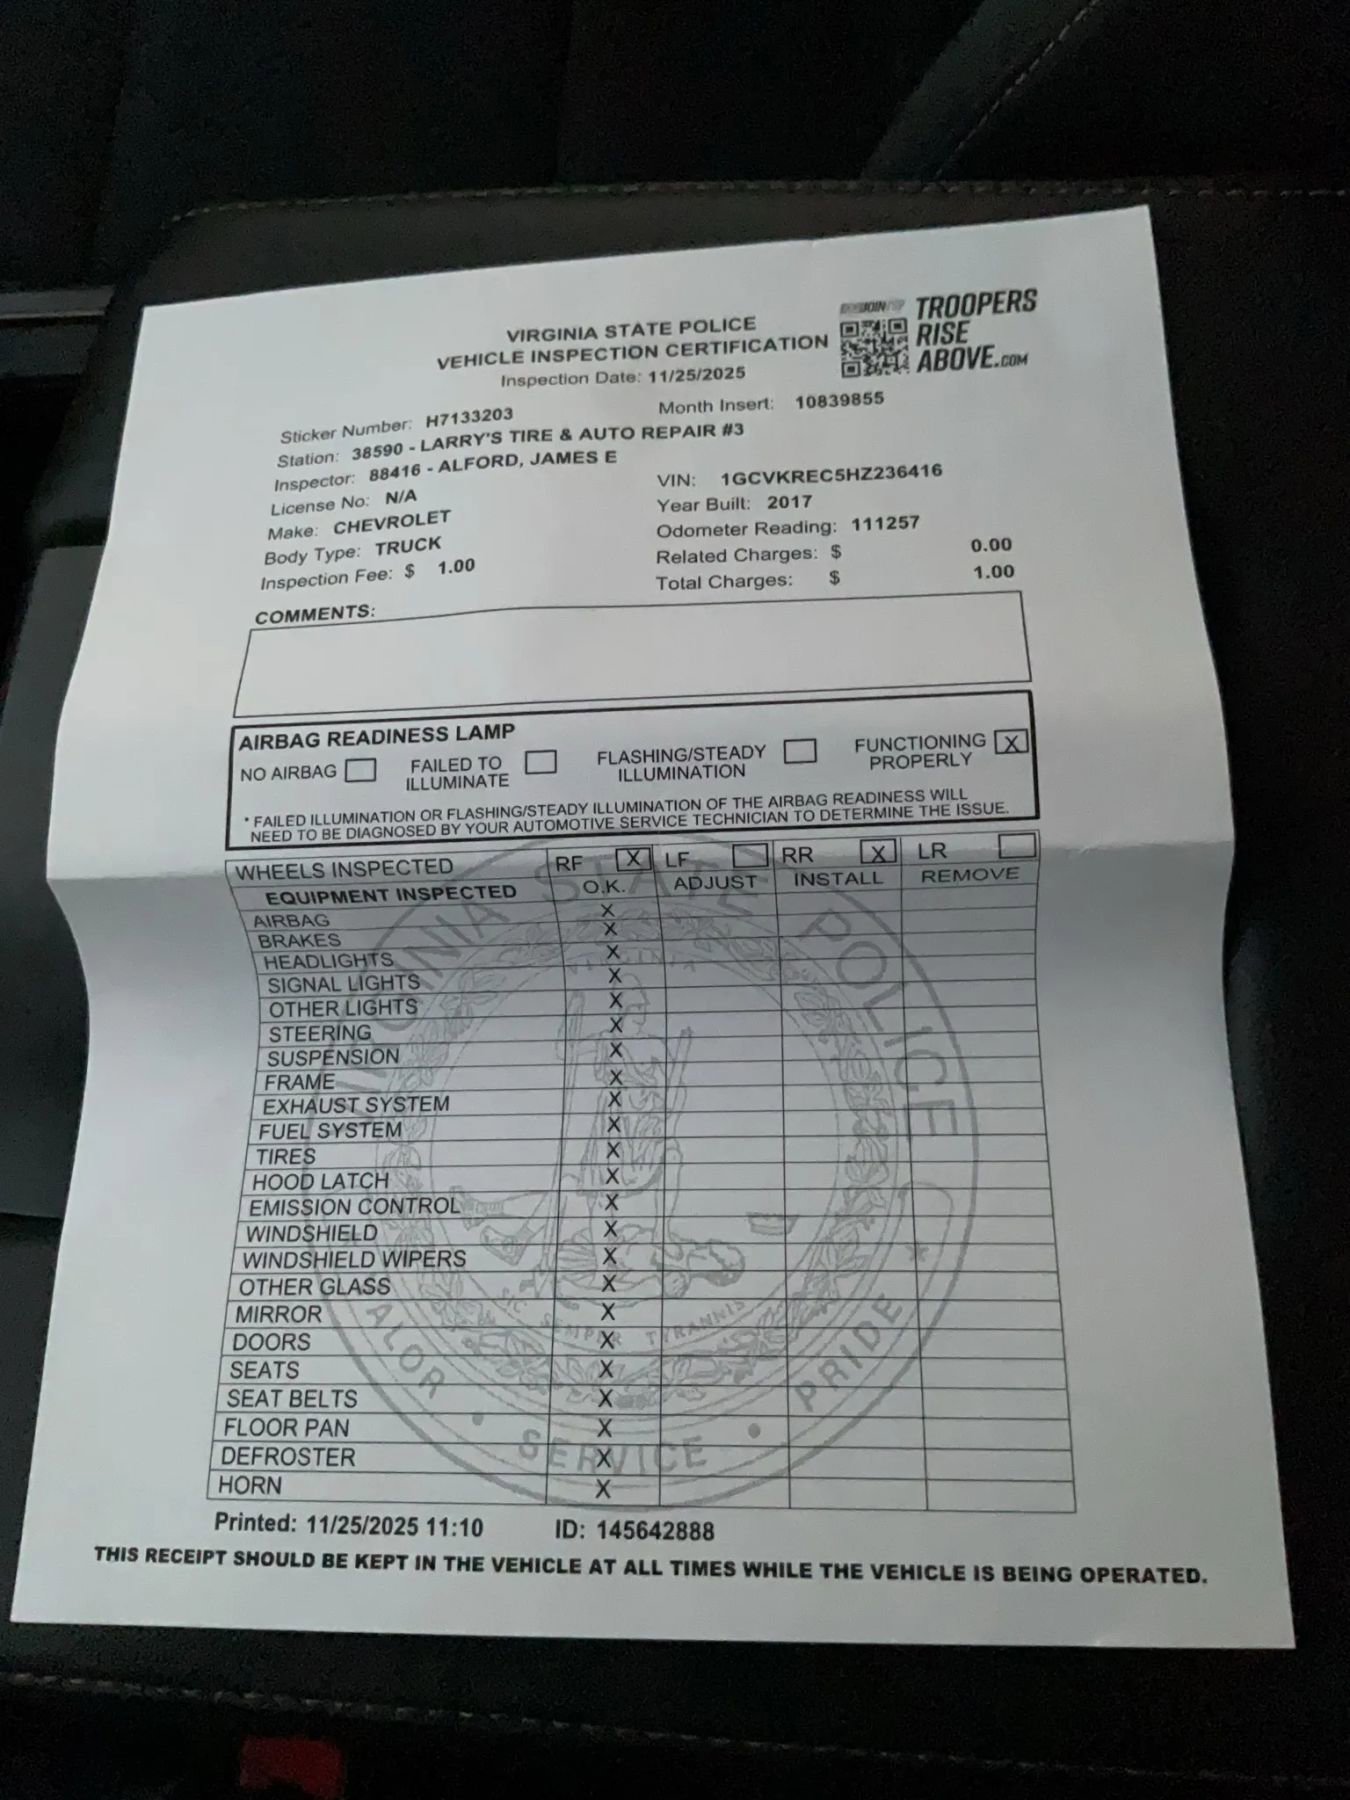 JOIN
TROOPERS
RISE
ABOVE.COM
VIRGINIA STATE POLICE
VEHICLE INSPECTION CERTIFICATION
Inspection Date: 11/25/2025
Sticker Number: H7133203 Month Insert: 10839855
Station: 38590 - LARRY'S TIRE & AUTO REPAIR #3
Inspector: 88416 - ALFORD, JAMES E VIN: 1GCVKREC5HZ236416
License No: N/A Year Built: 2017
Make: CHEVROLET Odometer Reading: 111257
Body Type: TRUCK Related Charges: $ 0.00
Inspection Fee: $ 1.00 Total Charges: $ 1.00
COMMENTS:
AIRBAG READINESS LAMP
NO AIRBAG FAILED TO ILLUMINATE FLASHING/STEADY ILLUMINATION FUNCTIONING PROPERLY X
* FAILED ILLUMINATION OR FLASHING/STEADY ILLUMINATION OF THE AIRBAG READINESS WILL
NEED TO BE DIAGNOSED BY YOUR AUTOMOTIVE SERVICE TECHNICIAN TO DETERMINE THE ISSUE.
WHEELS INSPECTED RF X LF RR X LR
EQUIPMENT INSPECTED O.K. ADJUST INSTALL REMOVE
AIRBAG X
BRAKES X
HEADLIGHTS X
SIGNAL LIGHTS X
OTHER LIGHTS X
STEERING X
SUSPENSION X
FRAME X
EXHAUST SYSTEM X
FUEL SYSTEM X
TIRES X
HOOD LATCH X
EMISSION CONTROL X
WINDSHIELD X
WINDSHIELD WIPERS X
OTHER GLASS X
MIRROR X
DOORS X
SEATS X
SEAT BELTS X
FLOOR PAN X
DEFROSTER X
HORN X
VIRGINIA STATE POLICE
VIRGINIA
SIC SEMPER TYRANNIS
VALOR • SERVICE • PRIDE
Printed: 11/25/2025 11:10 ID: 145642888
THIS RECEIPT SHOULD BE KEPT IN THE VEHICLE AT ALL TIMES WHILE THE VEHICLE IS BEING OPERATED.